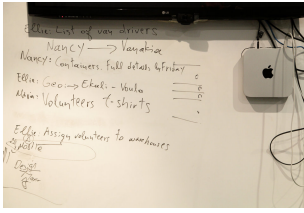 Ellie: List of van drivers
Nancy → Varvakia
Nancy: Containers. Full details by Friday
Ellie: Geo → Ekali - Voula
Maria: Volunteers t-shirts
Ellie: Assign volunteers to warehouses
Design